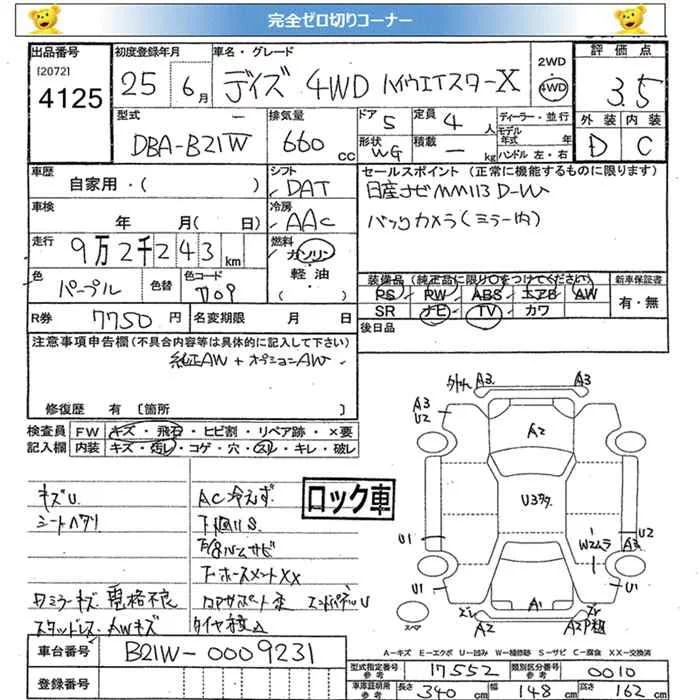 完全ゼロ切りコーナー
出品番号
[2072]
4125
初度登録年月
25 6月
車名・グレード
デイズ 4WD ハイウェイスターX
2WD
・
4WD
評価点
3.5
外装 内装
D C
型式
DBA-B21W
排気量
660 cc
ドア 5
形状 WG
定員 4人
積載 ー kg
ディーラー・並行
モデル年式 年
ハンドル 左・右
車歴
自家用・( )
シフト
DAT
セールスポイント (正常に機能するものに限ります)
日産ナビMM113D-W
バックカメラ(ミラー内)
車検
年 月( 日)
冷房
AAC
走行
9万2千243km
燃料
ガソリン・軽油・( )
色
パープル
色替
色コード
装備品 (純正品に限り○をつけてください)
PS PW ABS エアB AW
SR ナビ TV カワ
新車保証書
有・無
R券
7750円
名変期限 月 日
後日品
注意事項申告欄(不具合内容等は具体的に記入して下さい)
純正AW+オプションAW
修復歴 有 [箇所 ]
検査員記入欄
FW キズ・飛石・ヒビ割・リペア跡・×要
内装 キズ・汚レ・コゲ・穴・スレ・キレ・破レ
キズU
シートヘタリ
AC冷えず
下廻りS
ロック車
下ホースメントXX
コアサポート歪
Wミラーキズ 電格不良
スタッドレス・AWキズ
タイヤ積△
A3 A3
A3
U2
A2
U3タタ
U1
U2
A3
W2ムラ
U1
A1
スペア
A2
A2P粗
A-キズ E-エクボ U-凹み W-補修跡 S-サビ C-腐食 XX-交換済
車台番号
B21W-0009231
登録番号
型式指定番号 参考
17552
類別区分番号 参考
0010
車庫証明用 参考
長さ 340cm 幅 148cm 高さ 162cm